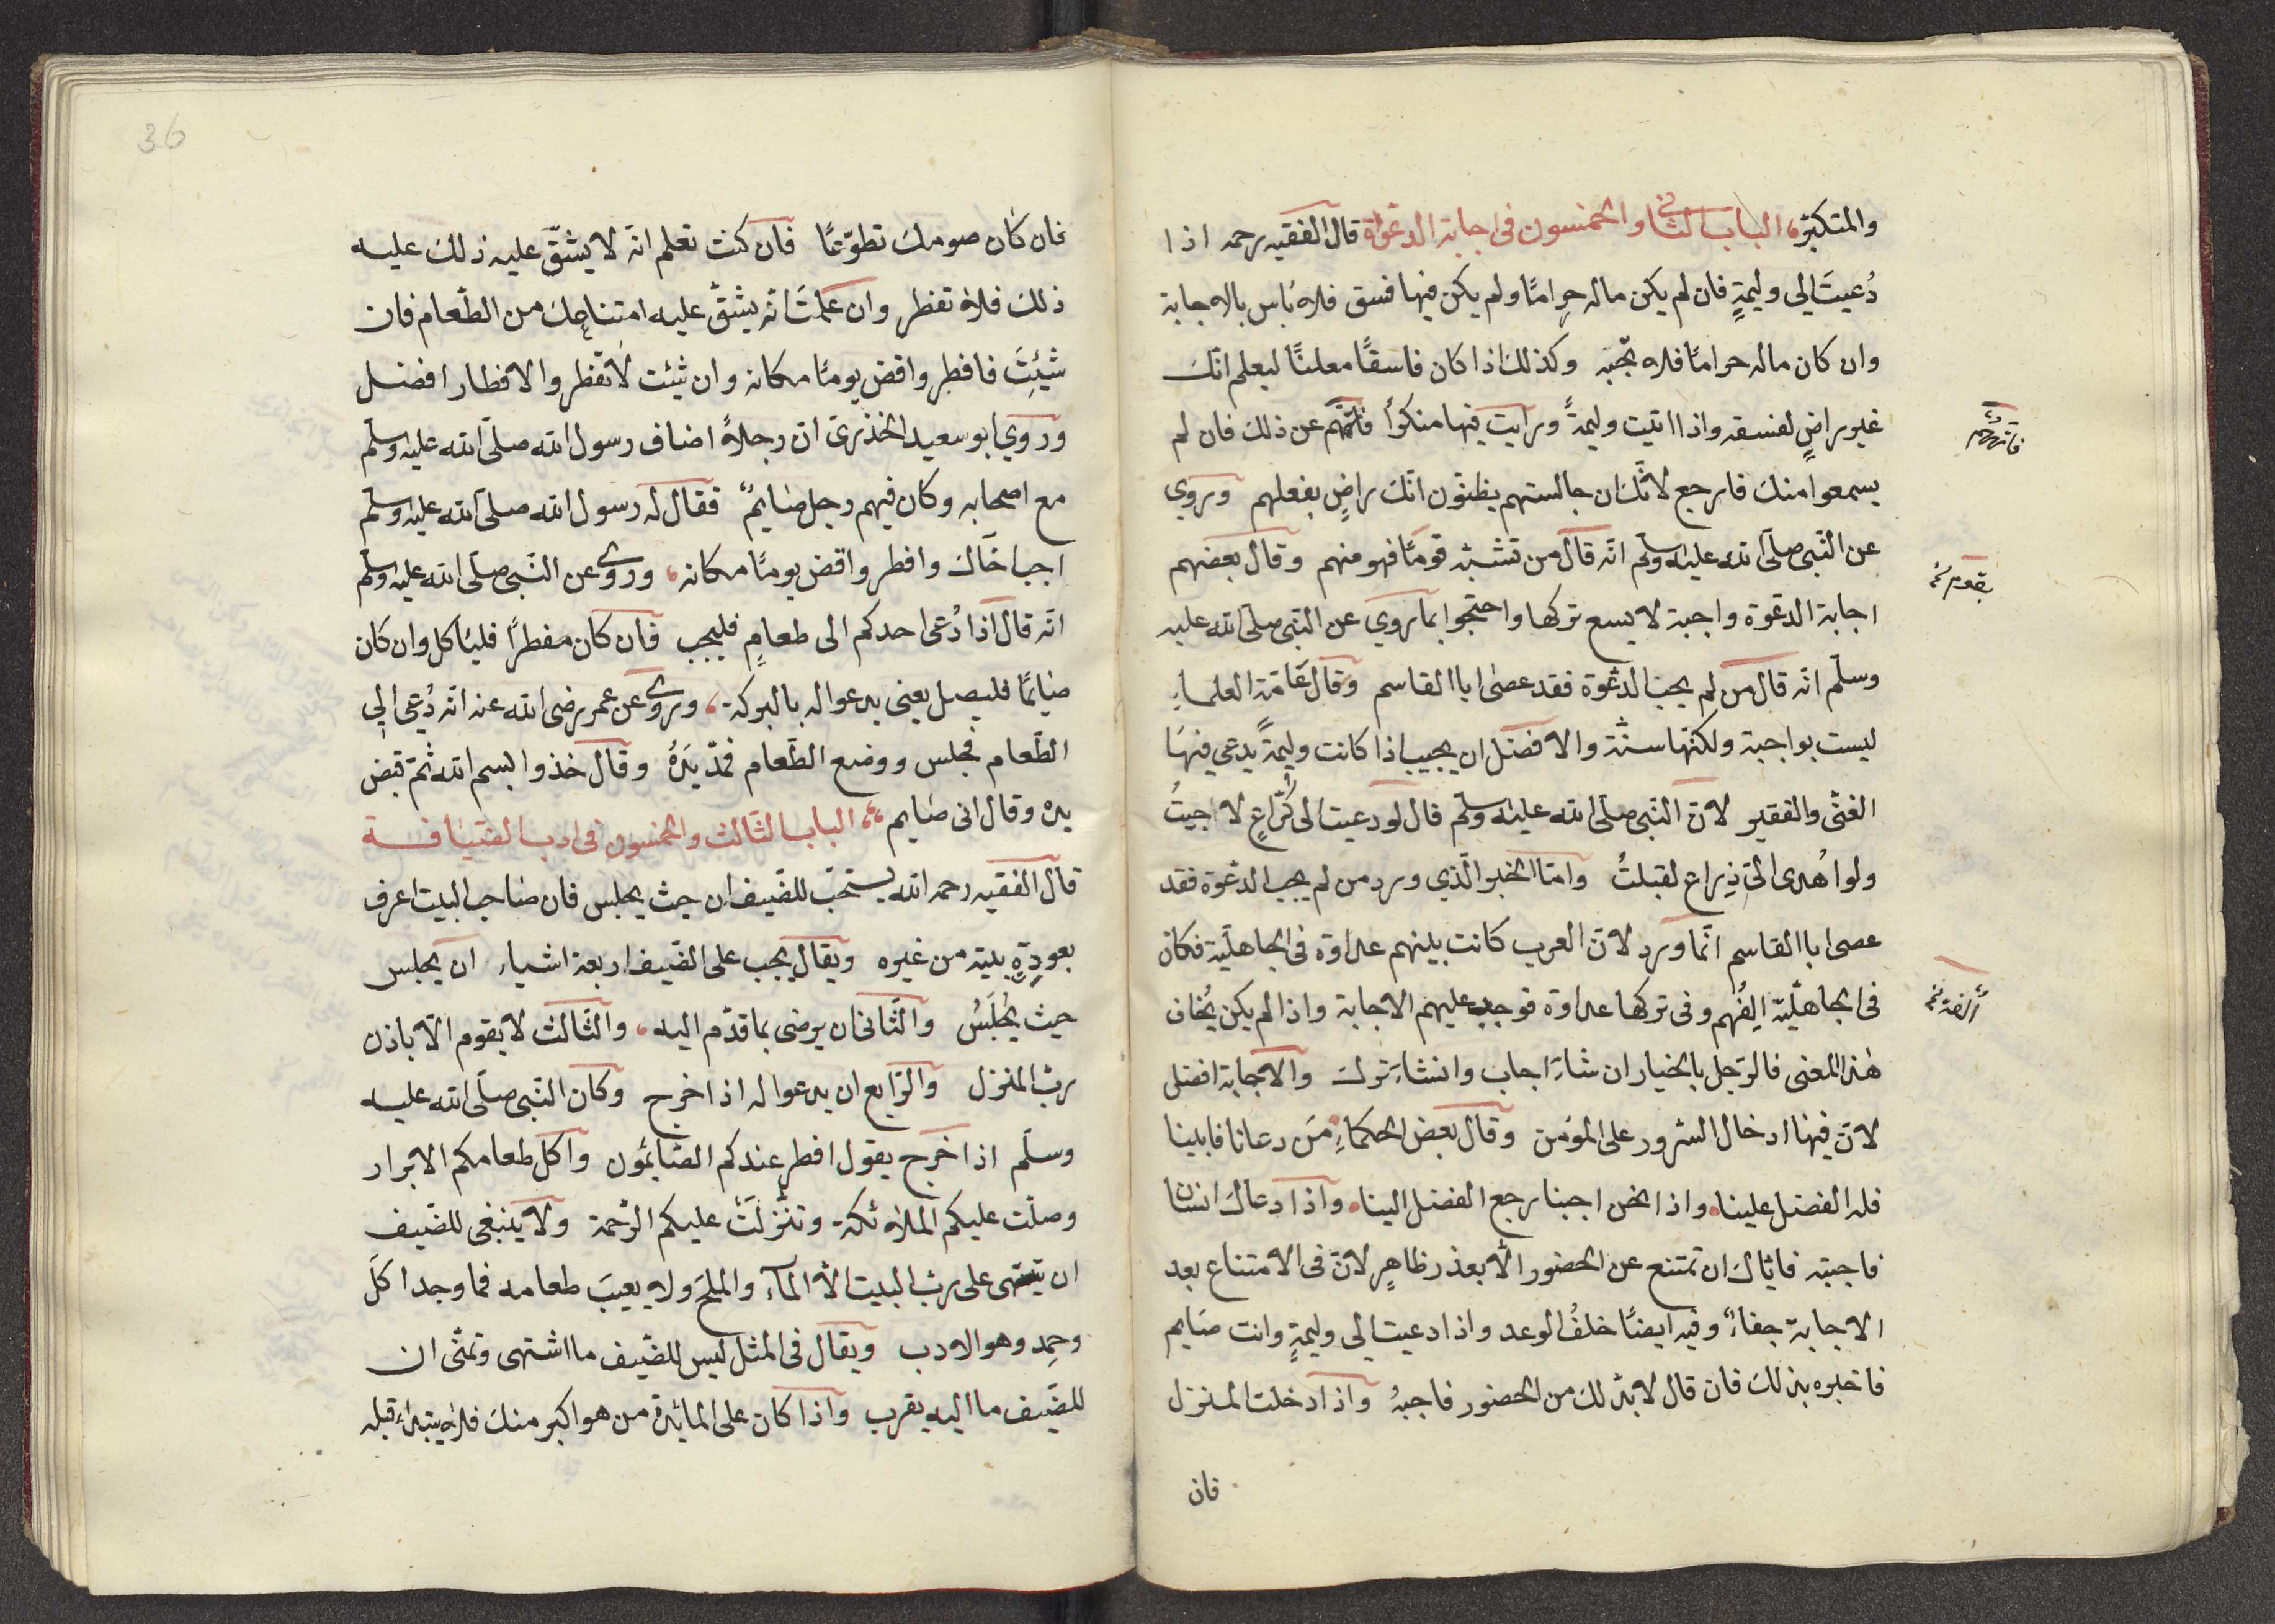 والمتكبّر، الباب الثانى والخمسون فى اجابة الدعوة قال الفقيه رحمه اذا
دُعيتَ الى وليمةٍ فان لم يكن ماله حرامًا ولم يكن فيها فسق فلا بأس بالاجابة
وان كان ماله حرامًا فلا تجبْه وكذلك اذا كان فاسقًا معلنًا ليعلم انّك
غير راضٍ لفسقه واذا اتيت وليمةً ورايت فيها منكرًا فانههم عن ذلك فان لم
يسمعوا منك فارجع لانّك ان جالستهم يظنّون انّك راضٍ بفعلهم وروي
عن النّبى صلّى الله عليه وسلّم انّه قال من تشبّه قومًا فهو منهم وقال بعضهم
اجابة الدعوة واجبة لا يسع تركها واحتجّوا بما روي عن النّبى صلّى الله عليه
وسلّم انّه قال من لم يجب الدعوة فقد عصى ابا القاسم وقال عَامّة العلماءِ
ليست بواجبة ولكنّها سنّة والافضل ان يجيب اذا كانت وليمةً يدعى فيهَا
الغنّى والفقير لانّ النّبى صلّى الله عليه وسلّم قال لو دعيت الى كُرَاعٍ لاجبتُ
ولو اُهدى الىّ ذِراع لقبلتُ وامّا الخبر الّذي ورد من لم يجب الدعوة فقد
عصى ابا القاسم انّما ورد لانّ العرب كانت بينهم عداوة فى الجاهليّة فكان
فى الجاهليّة اِلفُهم وفى تركها عداوة فوجب عليهم الاجابة واذا لم يكن يُخاف
هذا المعنى فالرّجل بالخيار ان شاءَ اجاب وان شاءَ ترك والاجابة افضل
لانّ فيها ادخال السّرور على المؤمن وقال بعض الحكماءِ مَن دعانا فابينا
فله الفضل علينا واذا نحن اجبنا رجع الفضل الينا واذا دعاك انسان
فاجبته فايّاك ان تمتنع عن الحضور الّا بعذر ظاهرٍ لانّ فى الامتناع بعد
الاجابة جفاءً وفيه ايضًا خلفُ الوعد واذا دعيت الى وليمةٍ وانت صَايم
فاخبره بذلك فان قال لا بدّ لك من الحضور فاجبهُ واذا دخلت المنزل
فان
36
فان كان صومك تطوّعًا فان كنت تعلم انّه لا يشقّ عليه ذلك عليه
ذلك فلا تفطر وان علمتَ انّه يشقّ عليه امتناعك من الطّعام فان
شيئتَ فافطر واقض يومًا مكانه وان شئت لا تفطر والافطار افضل
وروي ابو سعيد الخذرىّ ان رجلاً اضاف رسول الله صلّى الله عليه وسلّم
مع اصحابه وكان فيهم رجل صَايمٌ فقال له رسول الله صلّى الله عليه وسلّم
اجب اخَاك وافطر واقض يومًا مكانه، وروى عن النّبى صلّى الله عليه وسلّم
انّه قال اذا دُعى احدكم الى طعامٍ فليجب فان كان مفطرًا فليأكل وان كان
صَايمًا فليصل يعنى يدعو له بالبركة، وروى عن عمر رضى الله عنه انّه دُعى الى
الطّعام فجلس ووضع الطّعام فمدّ يَدهُ وقال خذوا بسم الله ثمّ قبض
يده وقال انى صَايم، الباب الثّالث والخمسون فى ادب الضّيَافة
قال الفقيه رحمه الله يستحبّ للضّيف ان حيث يجلس فان صَاحب البيت اعرف
بعورةٍ بيته من غيره ويقال يجب على الضّيف اربعة اشياء ان يجلس
حيث يُجلَسُ والثّانى ان يرضى بما قدّم اليه، والثّالث لا يقوم الّا باذن
ربّ المنزل والرّابع ان يدعو له اذا خرج وكان النّبى صلّى الله عليه
وسلّم اذا خرج يقول افطر عندكم الصّائمون واكل طعامكم الابرار
وصلّت عليكم الملائكة وتنزّلَتْ عليكم الرّحمة ولا ينبغى للضّيف
ان يشتهى على ربّ البيت الّا المآء والملحَ ولا يعيبَ طعامه فما وجد اكل
وحمِد وهو الادب ويقال فى المثل ليس للضّيف ما اشتهى وتمنّى ان
للضّيف ما اليه يقرب واذا كان على المائدة من هو اكبر منك فلا يبتداء قبله